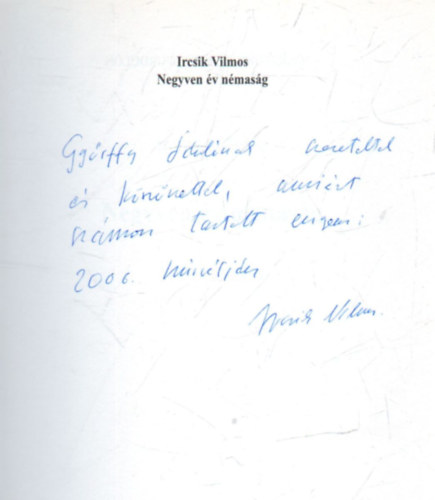 Ircsik Vilmos
Negyven év némaság
Györffy szeretettel
és köszönettel, amiért
számon tartott engem:
2006. húsvétján
Ircsik Vilmos